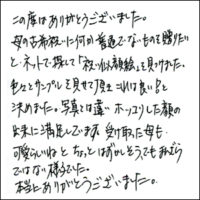 この度はありがとうございました。
母の古希祝いに何か普通でないものを贈りたい
と、ネットで探して「祝いは似顔絵」を見つけました。
色々とサンプルを見せて頂きこれは良い!と
決めました。写真とは違いホッコリした顔の
出来に満足しています 受け取った母も
可愛らしいねと ちょっとはずかしそうでもまんざら
ではない様子でした。
本当にありがとうございました。